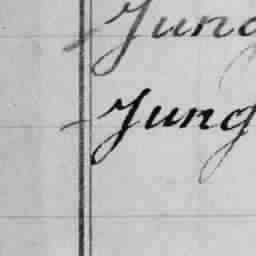 Jung
Jung